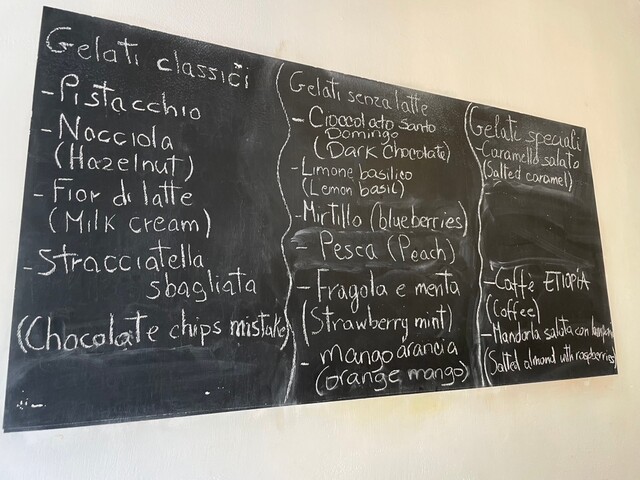 Gelati classici
- Pistacchio
- Nocciola
(Hazelnut)
- Fior di latte
(Milk cream)
- Stracciatella
sbagliata
(Chocolate chips mistake)
Gelati senza latte
- Cioccolato Santo
Domingo
(Dark Chocolate)
- Limone basilico
(Lemon basil)
- Mirtillo (blueberries)
- Pesca (Peach)
- Fragola e menta
(Strawberry mint)
- mango arancia
(orange mango)
Gelati speciali
- Caramello salato
(Salted caramel)
- Caffè ETIOPIA
(Coffee)
- Mandorla salata con
(Salted almond with raspberries)